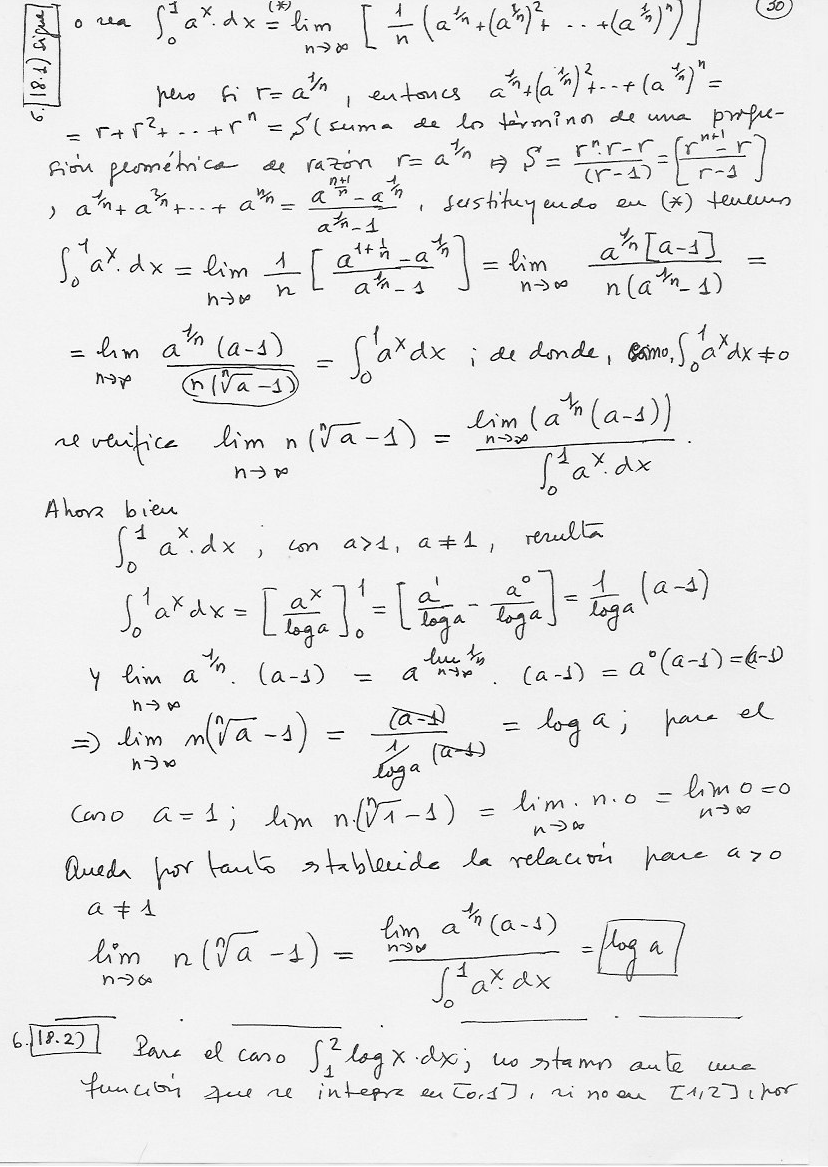 30
6.18.1) sigue
o sea ∫₀¹ aˣ·dx (*)= lim n→∞ [ 1/n (a^{1/n}+(a^{1/n})²+ ·· +(a^{1/n})ⁿ) ]
pero si r = a^{1/n}, entonces a^{1/n}+(a^{1/n})²+··+(a^{1/n})ⁿ =
= r+r²+··+rⁿ = S (suma de los términos de una progre-
sión geométrica de razón r = a^{1/n} ⇒ S = (rⁿ·r-r)/(r-1) = [(r^{n+1}-r)/(r-1)]
, a^{1/n}+a^{2/n}+··+a^{n/n} = (a^{(n+1)/n}-a^{1/n})/(a^{1/n}-1), sustituyendo en (*) tenemos
∫₀¹ aˣ·dx = lim n→∞ 1/n [ (a^{1+1/n}-a^{1/n})/(a^{1/n}-1) ] = lim n→∞ a^{1/n}[a-1]/(n(a^{1/n}-1)) =
= lim n→∞ a^{1/n}(a-1)/(n(ⁿ√a-1)) = ∫₀¹ aˣdx ; de donde, como, ∫₀¹ aˣdx ≠ 0
se verifica lim n→∞ n(ⁿ√a-1) = lim n→∞ (a^{1/n}(a-1)) / ∫₀¹ aˣ·dx.
Ahora bien
∫₀¹ aˣ·dx ; con a>1, a≠1, resulta
∫₀¹ aˣdx = [aˣ/log a]₀¹ = [a¹/log a - a⁰/log a] = 1/log a (a-1)
y lim n→∞ a^{1/n}·(a-1) = a^{lim n→∞ 1/n}·(a-1) = a⁰(a-1) = (a-1)
⇒ lim n→∞ n(ⁿ√a-1) = (a-1)/(1/log a (a-1)) = log a ; para el
caso a = 1 ; lim n·(ⁿ√1-1) = lim n→∞ · n·0 = lim n→∞ 0 = 0
Queda por tanto establecida la relación para a>0
a≠1
lim n→∞ n(ⁿ√a-1) = lim n→∞ a^{1/n}(a-1) / ∫₀¹ aˣ·dx = log a
6.18.2) Para el caso ∫₁² log x·dx ; no estamos ante una
función que se integra en [0,1], si no en [1,2], por